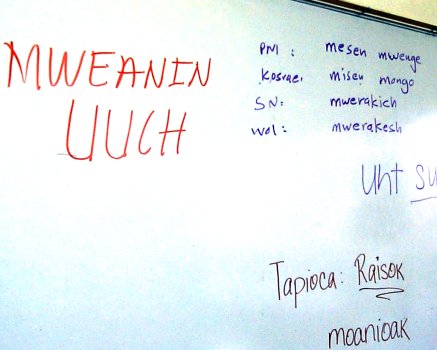 MWEANIN
UUCH
PNI : mesen mwenge
Kosrae: misen mongo
SN: mwerakich
Wol: mwerakesh
Uht su
Tapioca: Raisok
moanioak